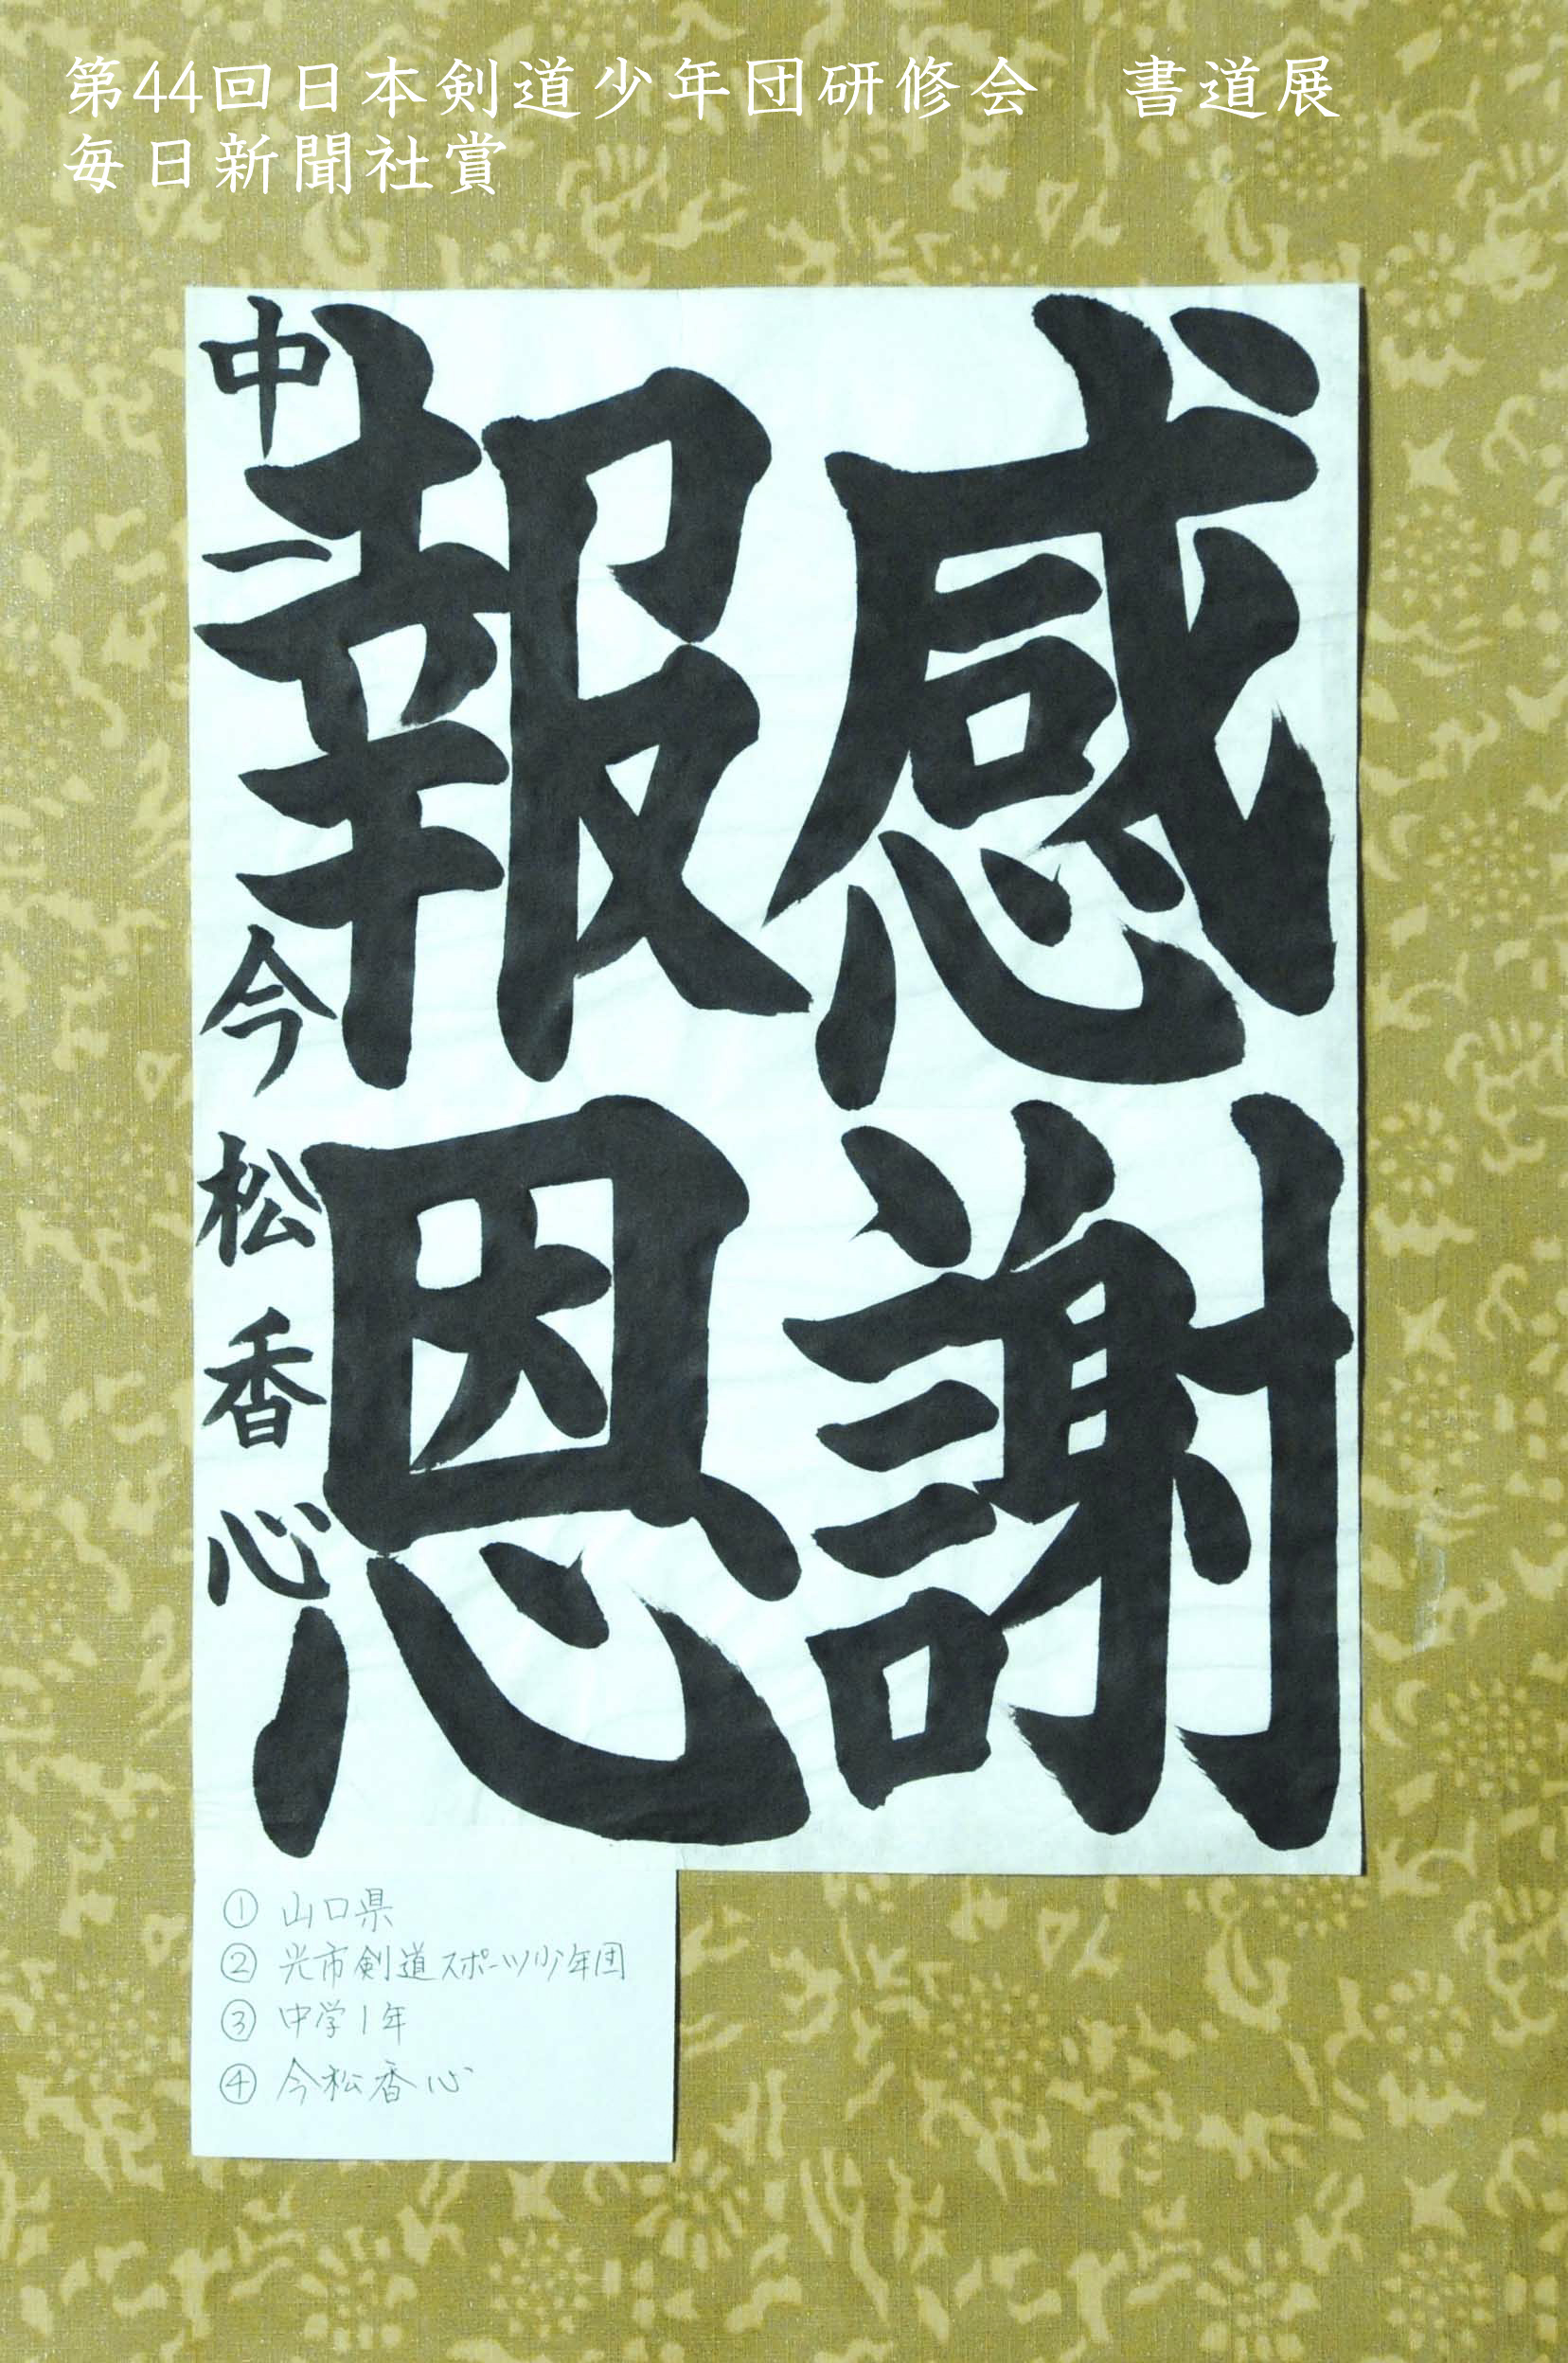 第44回日本剣道少年団研修会　書道展
毎日新聞社賞
感謝
報恩
中一 今松香心
① 山口県
② 光市剣道スポーツ少年団
③ 中学1年
④ 今松香心